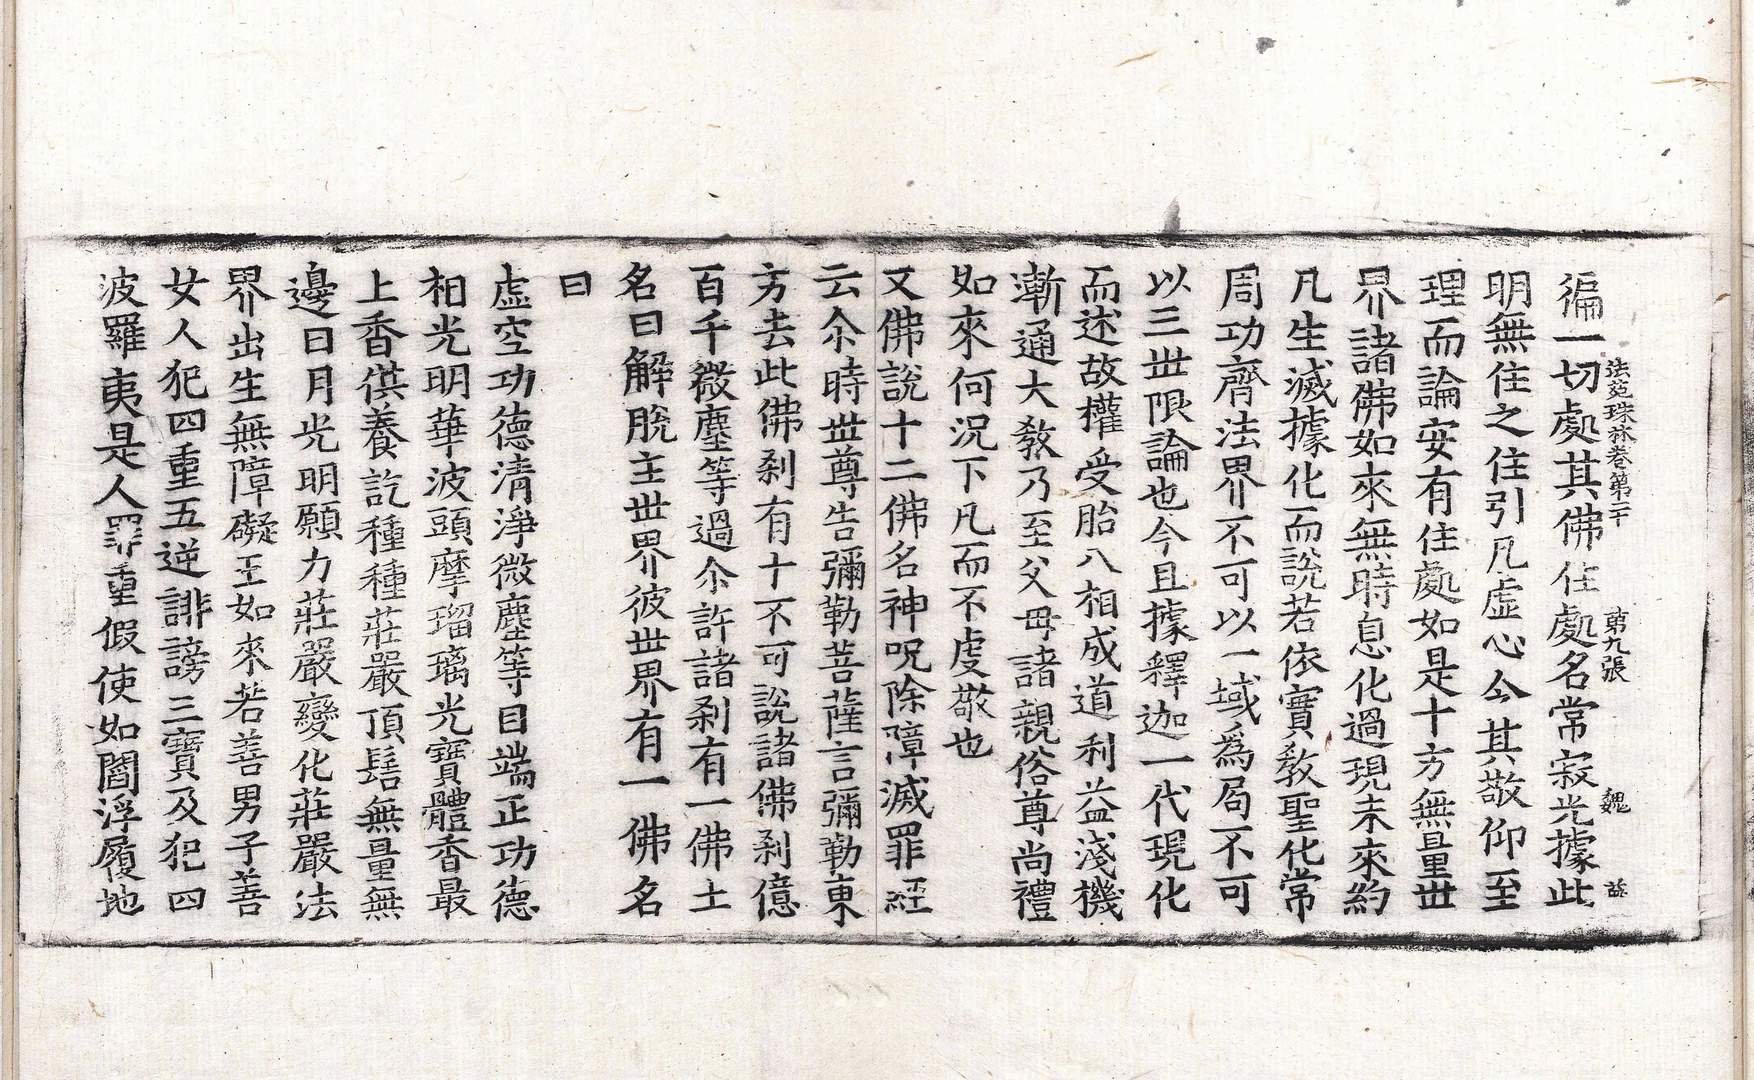 法苑珠林卷第二十 第九張 魏
徧一切處其佛住處名常寂光據此
明無住之住引凡虛心令其敬仰至
理而論安有住處如是十方無量世
界諸佛如來無時息化過現未來約
凡生滅據化而說若依實教聖化常
周功齊法界不可以一域為局不可
以三世限論也今且據釋迦一代現化
而述故權受胎八相成道利益淺機
漸通大教乃至父母諸親俗尊尚禮
如來何況下凡而不虔敬也
又佛說十二佛名神呪除障滅罪經
云尒時世尊告彌勒菩薩言彌勒東
方去此佛剎有十不可說諸佛剎億
百千微塵等過尒許諸剎有一佛土
名曰解脫主世界彼世界有一佛名
曰
虛空功德清淨微塵等目端正功德
相光明華波頭摩瑠璃光寶體香最
上香供養訖種種莊嚴頂髻無量無
邊日月光明願力莊嚴變化莊嚴法
界出生無障礙王如來若善男子善
女人犯四重五逆誹謗三寶及犯四
波羅夷是人罪重假使如閻浮履地